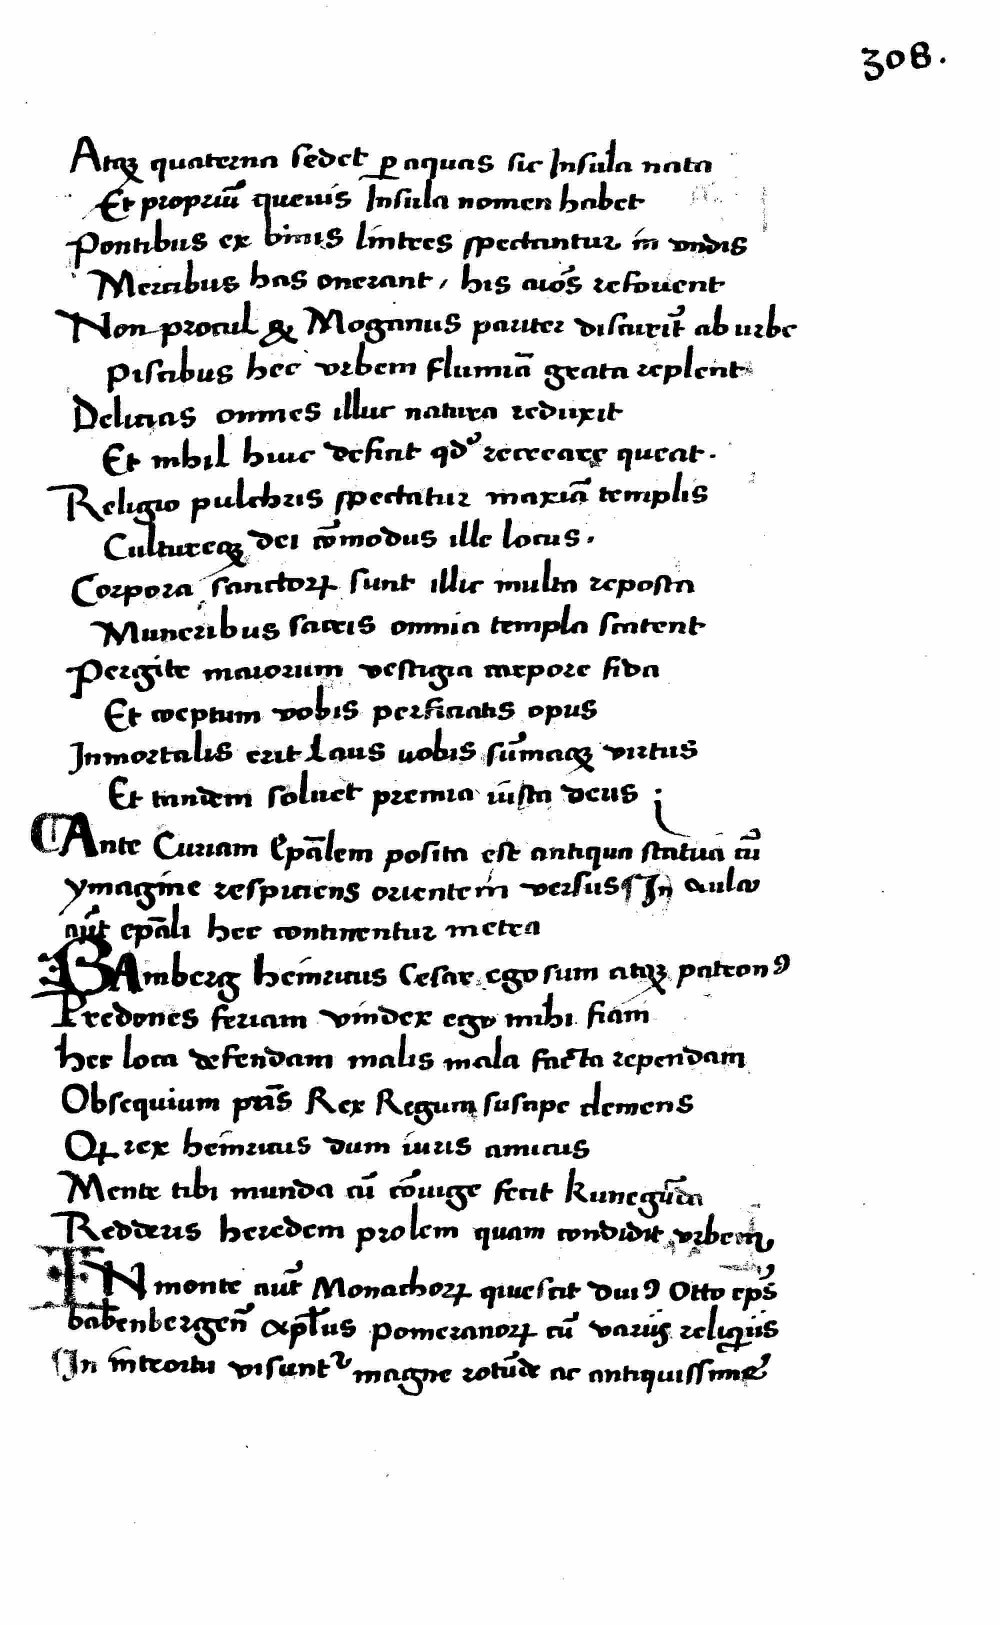 308.
Atqꝫ quaterna sedet ꝑ aquas sic Insula nata
Et propriū queuis Insula nomen habet
Pontibus ex binis lintres spectantur in vndis
Mercibus has onerant, his aiōs refouent
Non procul & Moganus pariter discurrit̄ ab urbe
Piscibus hec vrbem flumīa grata replent
Delicias omnes illuc natura reduxit
Et nihil huic deficit qd̄ recreare queat.
Religio pulchris spectatur maxiā templis
Cultureqꝫ dei cōmodus ille locus.
Corpora sanctoꝝ sunt illic multa reposta
Muneribus sacris omnia templa scatent
Pergite maiorum vestigia carpore fida
Et ceptum vobis perficiatis opus
Inmortalis erit Laus uobis sūmaqꝫ virtus
Et tandem soluet premia iusta deus
Ante Curiam Ep̄alem posita est antiqua statua cū
ymagine respiciens orientem versus ¶ In aula
aūt ep̄ali hec continentur metra
BAmberg heinricus Cesar ego sum atqꝫ patronꝰ
Predones feriam vindex ego mihi fiam
hec loca defendam malis mala facta rependam
Obsequium pr̄is Rex Regum suscipe clemens
Qꝝ rex heinricus dum iuris amicus
Mente tibi munda cū cōiuge fecit kunegūda
Redderis heredem prolem quam condidit vrbem
IN monte aūt Monachoꝝ quiescit Diuꝰ Otto ep̄s
babenbergen̄ Apl̄us pomeranoꝝ cū varijs reliquiis
¶ In introitu visuntᷣ magne rotūde ac antiquissime